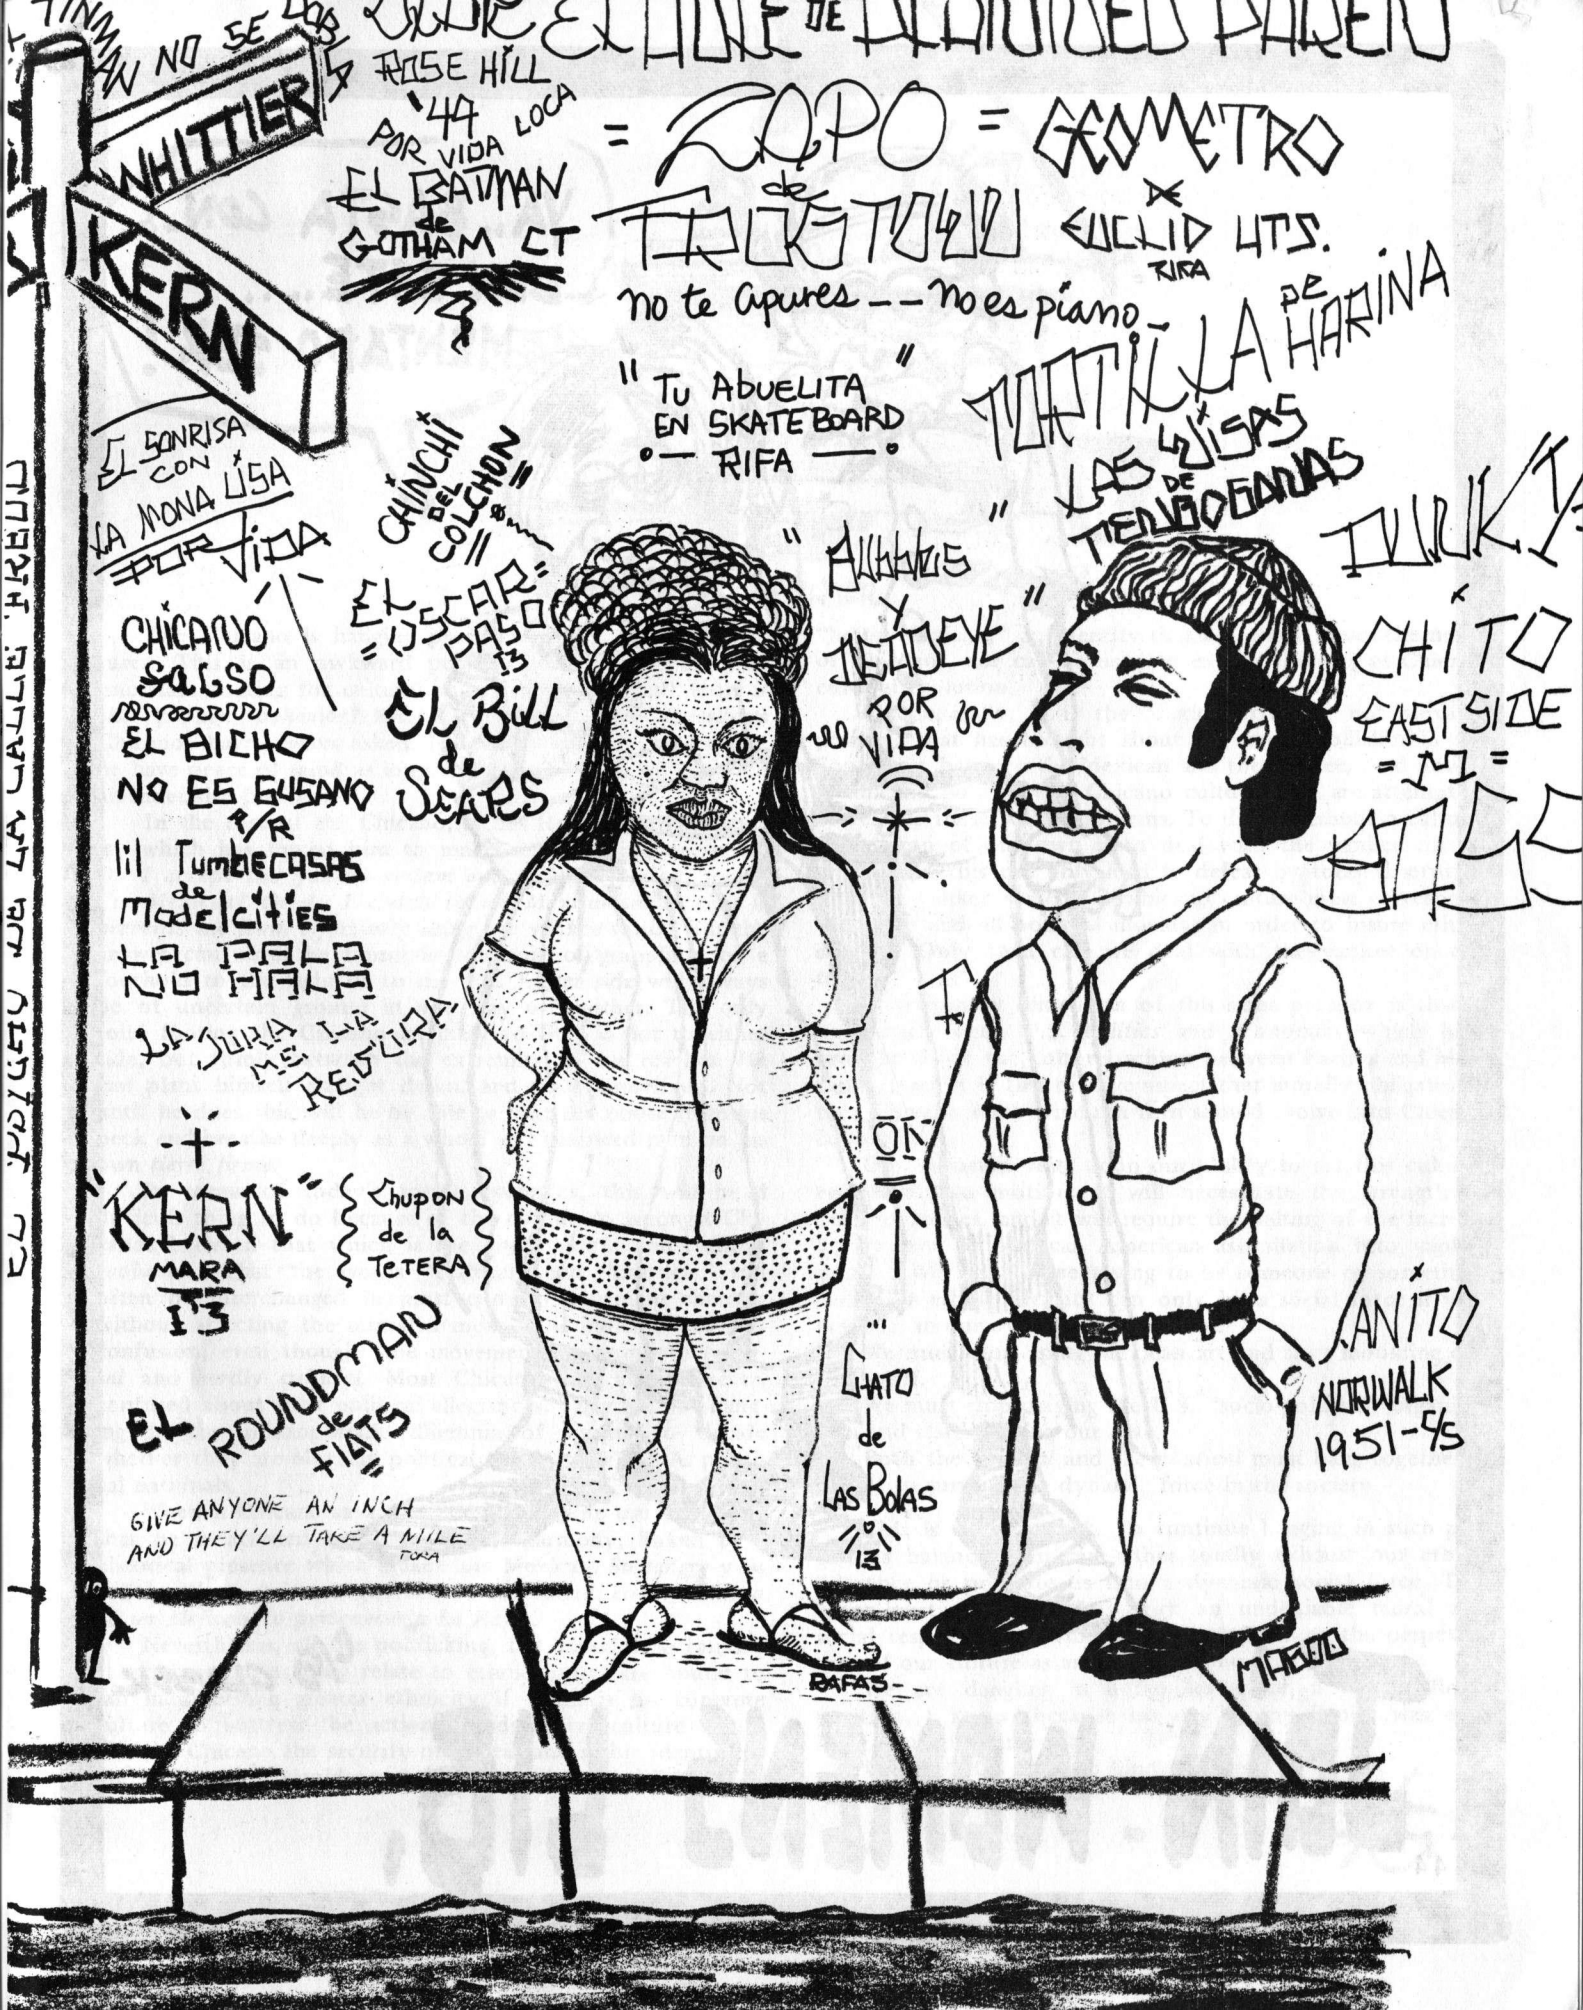 TINMAN NO SE DOBLA
EL HOLE DE PLANNED PAREN
WHITTIER
KERN
ROSE HILL
'44
POR VIDA LOCA
EL BATMAN
de
GOTHAM CT
= ZAPO =
de
FROGTOWN
GEOMETRO
DE
EUCLID HTS.
RIFA
no te apures -- no es piano -
"TU ABUELITA
EN SKATEBOARD
RIFA"
TORTILLA DE HARINA
LAS LISAS
DE
TENGOGANAS
EL SONRISA
CON
LA MONA LISA
POR VIDA
CHINCHI
DEL
COLCHON
EL
"OSCAR"
PASO
13
EL BILL
de
SEARS
CHICANO
FALSO
EL BICHO
NO ES GUSANO
P/R
lil TUMBECASAS
de
Modelcities
LA PALA
NO HALA
LA JURA
ME LA
REDJURA
+
"KERN"
MARA
13
Chupon
de la
TETERA
EL ROUNDMAN
de
FIATS
GIVE ANYONE AN INCH
AND THEY'LL TAKE A MILE
"Bubbles"
Y
"DEDEYE"
POR
VIDA
CHITO
EASTSIDE
= M =
CHATO
de
LAS BOLAS
13
.ANITO
NORWALK
1951-C/S
RAFAS
MAGOO
DE LA CALLE